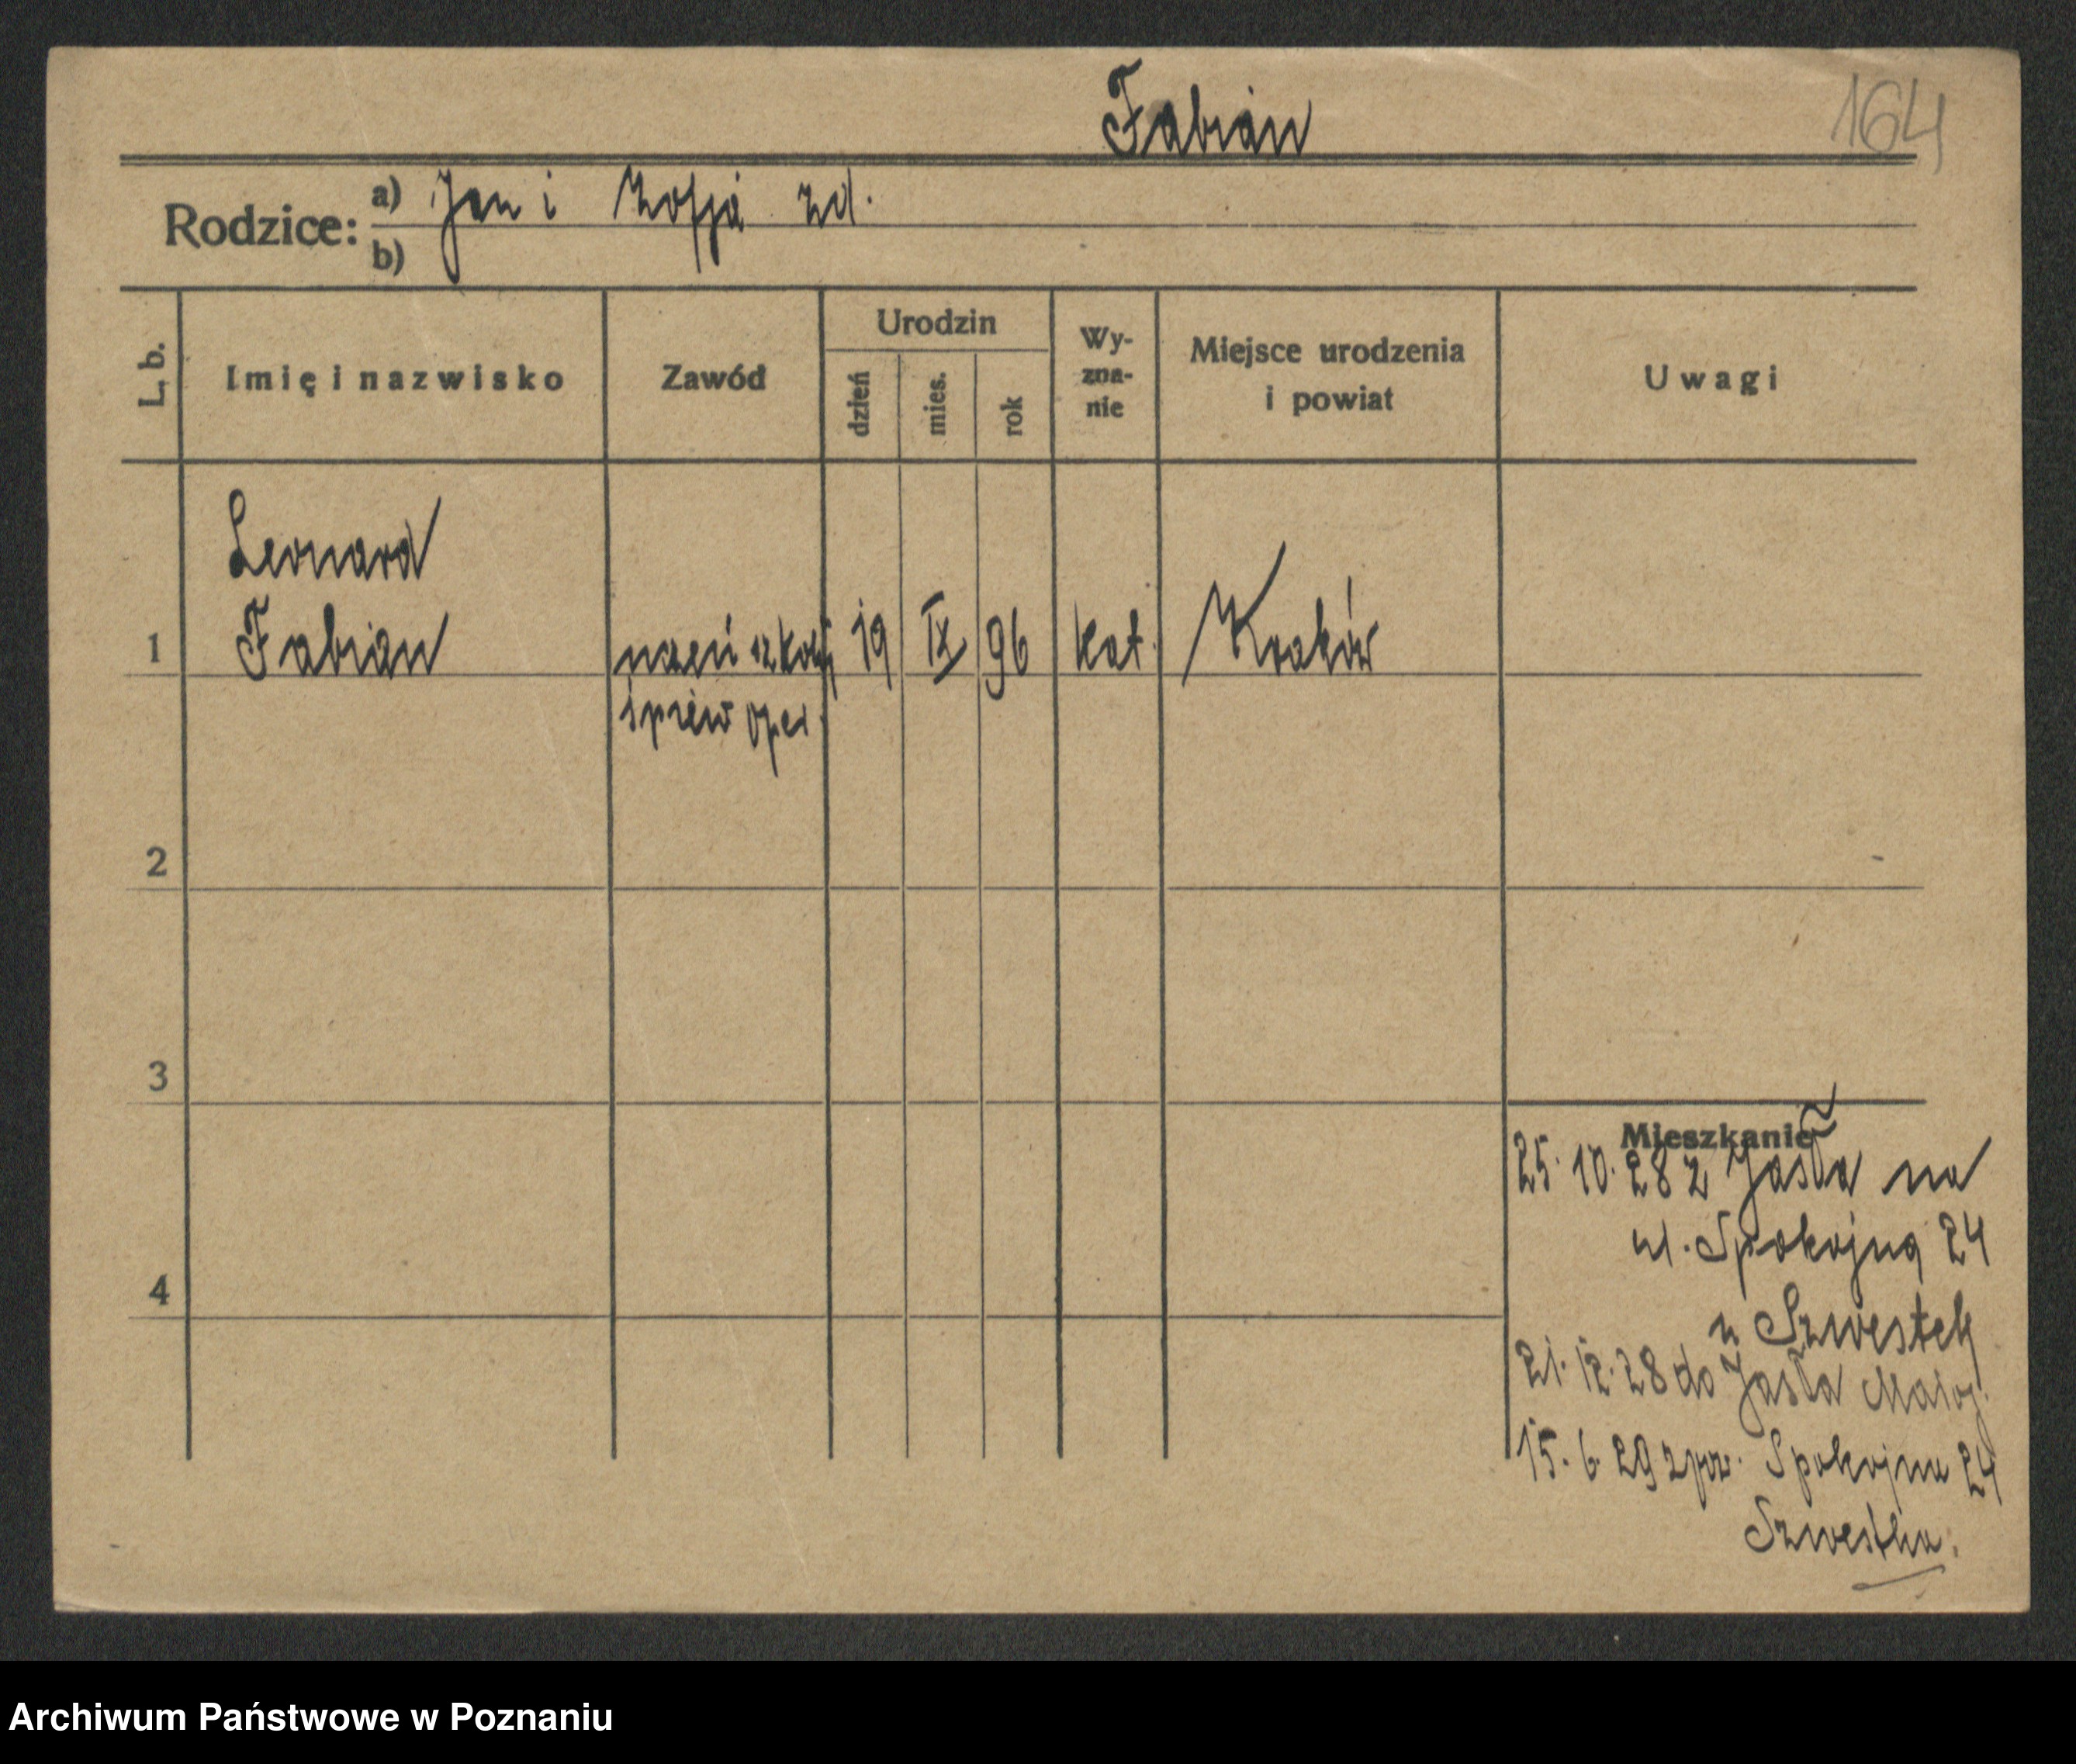 Fabian
164
Rodzice: a) Jan i Zofja zd.
b)
L. b.
Imię i nazwisko
Zawód
Urodzin
dzień
mies.
rok
Wy-
zna-
nie
Miejsce urodzenia
i powiat
Uwagi
Leonard
1 Fabian uczeń szkoły 19 IX 96 kat. Kraków
śpiew oper.
2
3
4
Mieszkanie
25. 10. 28 z Jasła na
ul. Spokojną 24
u Szwestek
21. 12. 28 do Jasła
15. 6. 29 z pow. Spokojna 24
Szwestka.
Archiwum Państwowe w Poznaniu